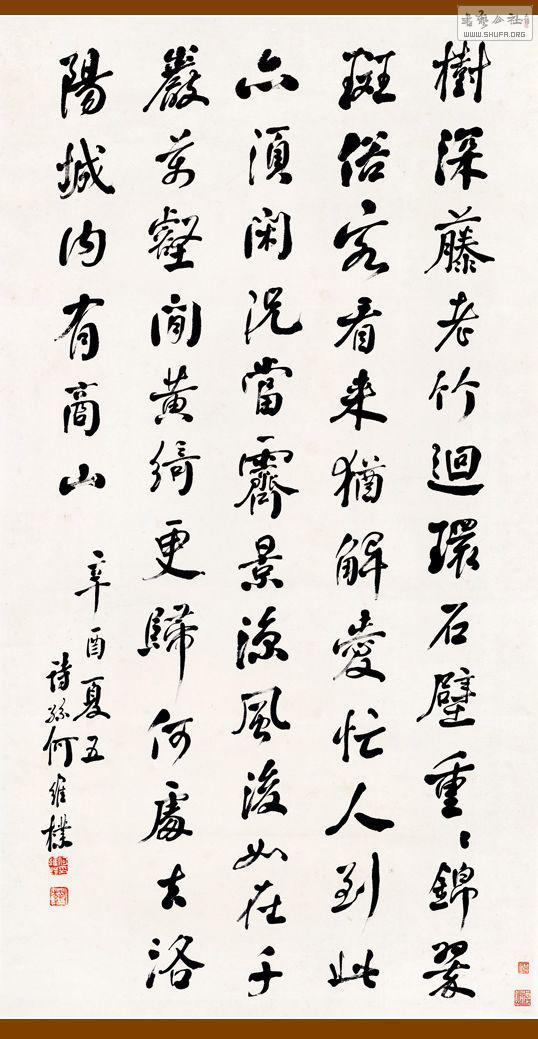 樹深藤老竹迴環石壁重〻錦翠
斑俗客看来猶解愛忙人到此
亦須閑況當霽景涼風後如在千
巖万壑間黄綺更歸何處去洛
陽城内有商山
辛酉夏五
詩孫何維樸
书艺公社
WWW.SHUFA.ORG